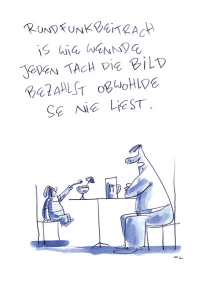 RUNDFUNKBEITRACH
IS WIE WENNDE
JEDEN TACH DIE BILD
BEZAHLST OBWOHLDE
SE NIE LIEST.